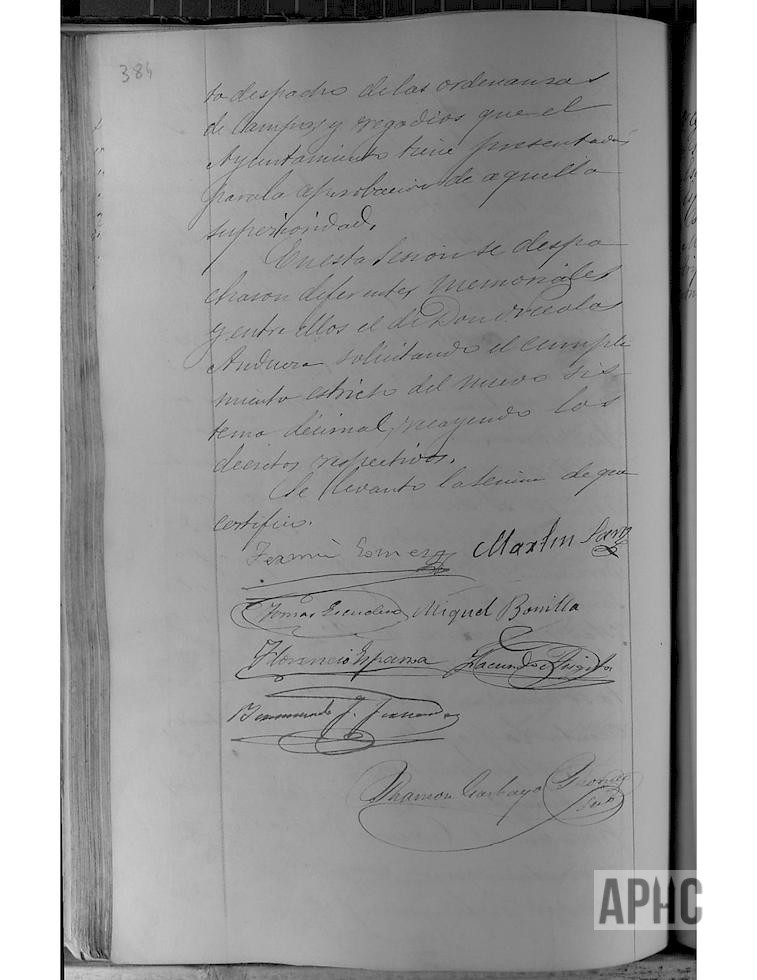 384
to despacho de las ordenanzas
de Campos y regadios que el
Ayuntamiento tiene presentadas
para la aprobacion de aquella
superioridad.
En esta sesion se despa
charon diferentes memoriales
y entre ellos el de Don Nicolas
Anduera solicitando el cumpli
miento estricto del nuevo sis
tema decimal, recayendo los
decretos respectivos.
Se levanto la sesion de que
certifico.
Fermin Gomez Martin Sanz
Tomas Escudero Miguel Bonilla
Florencio Esparza Facundo
Fernandez
Ramon Garbayo
Srio
APHC